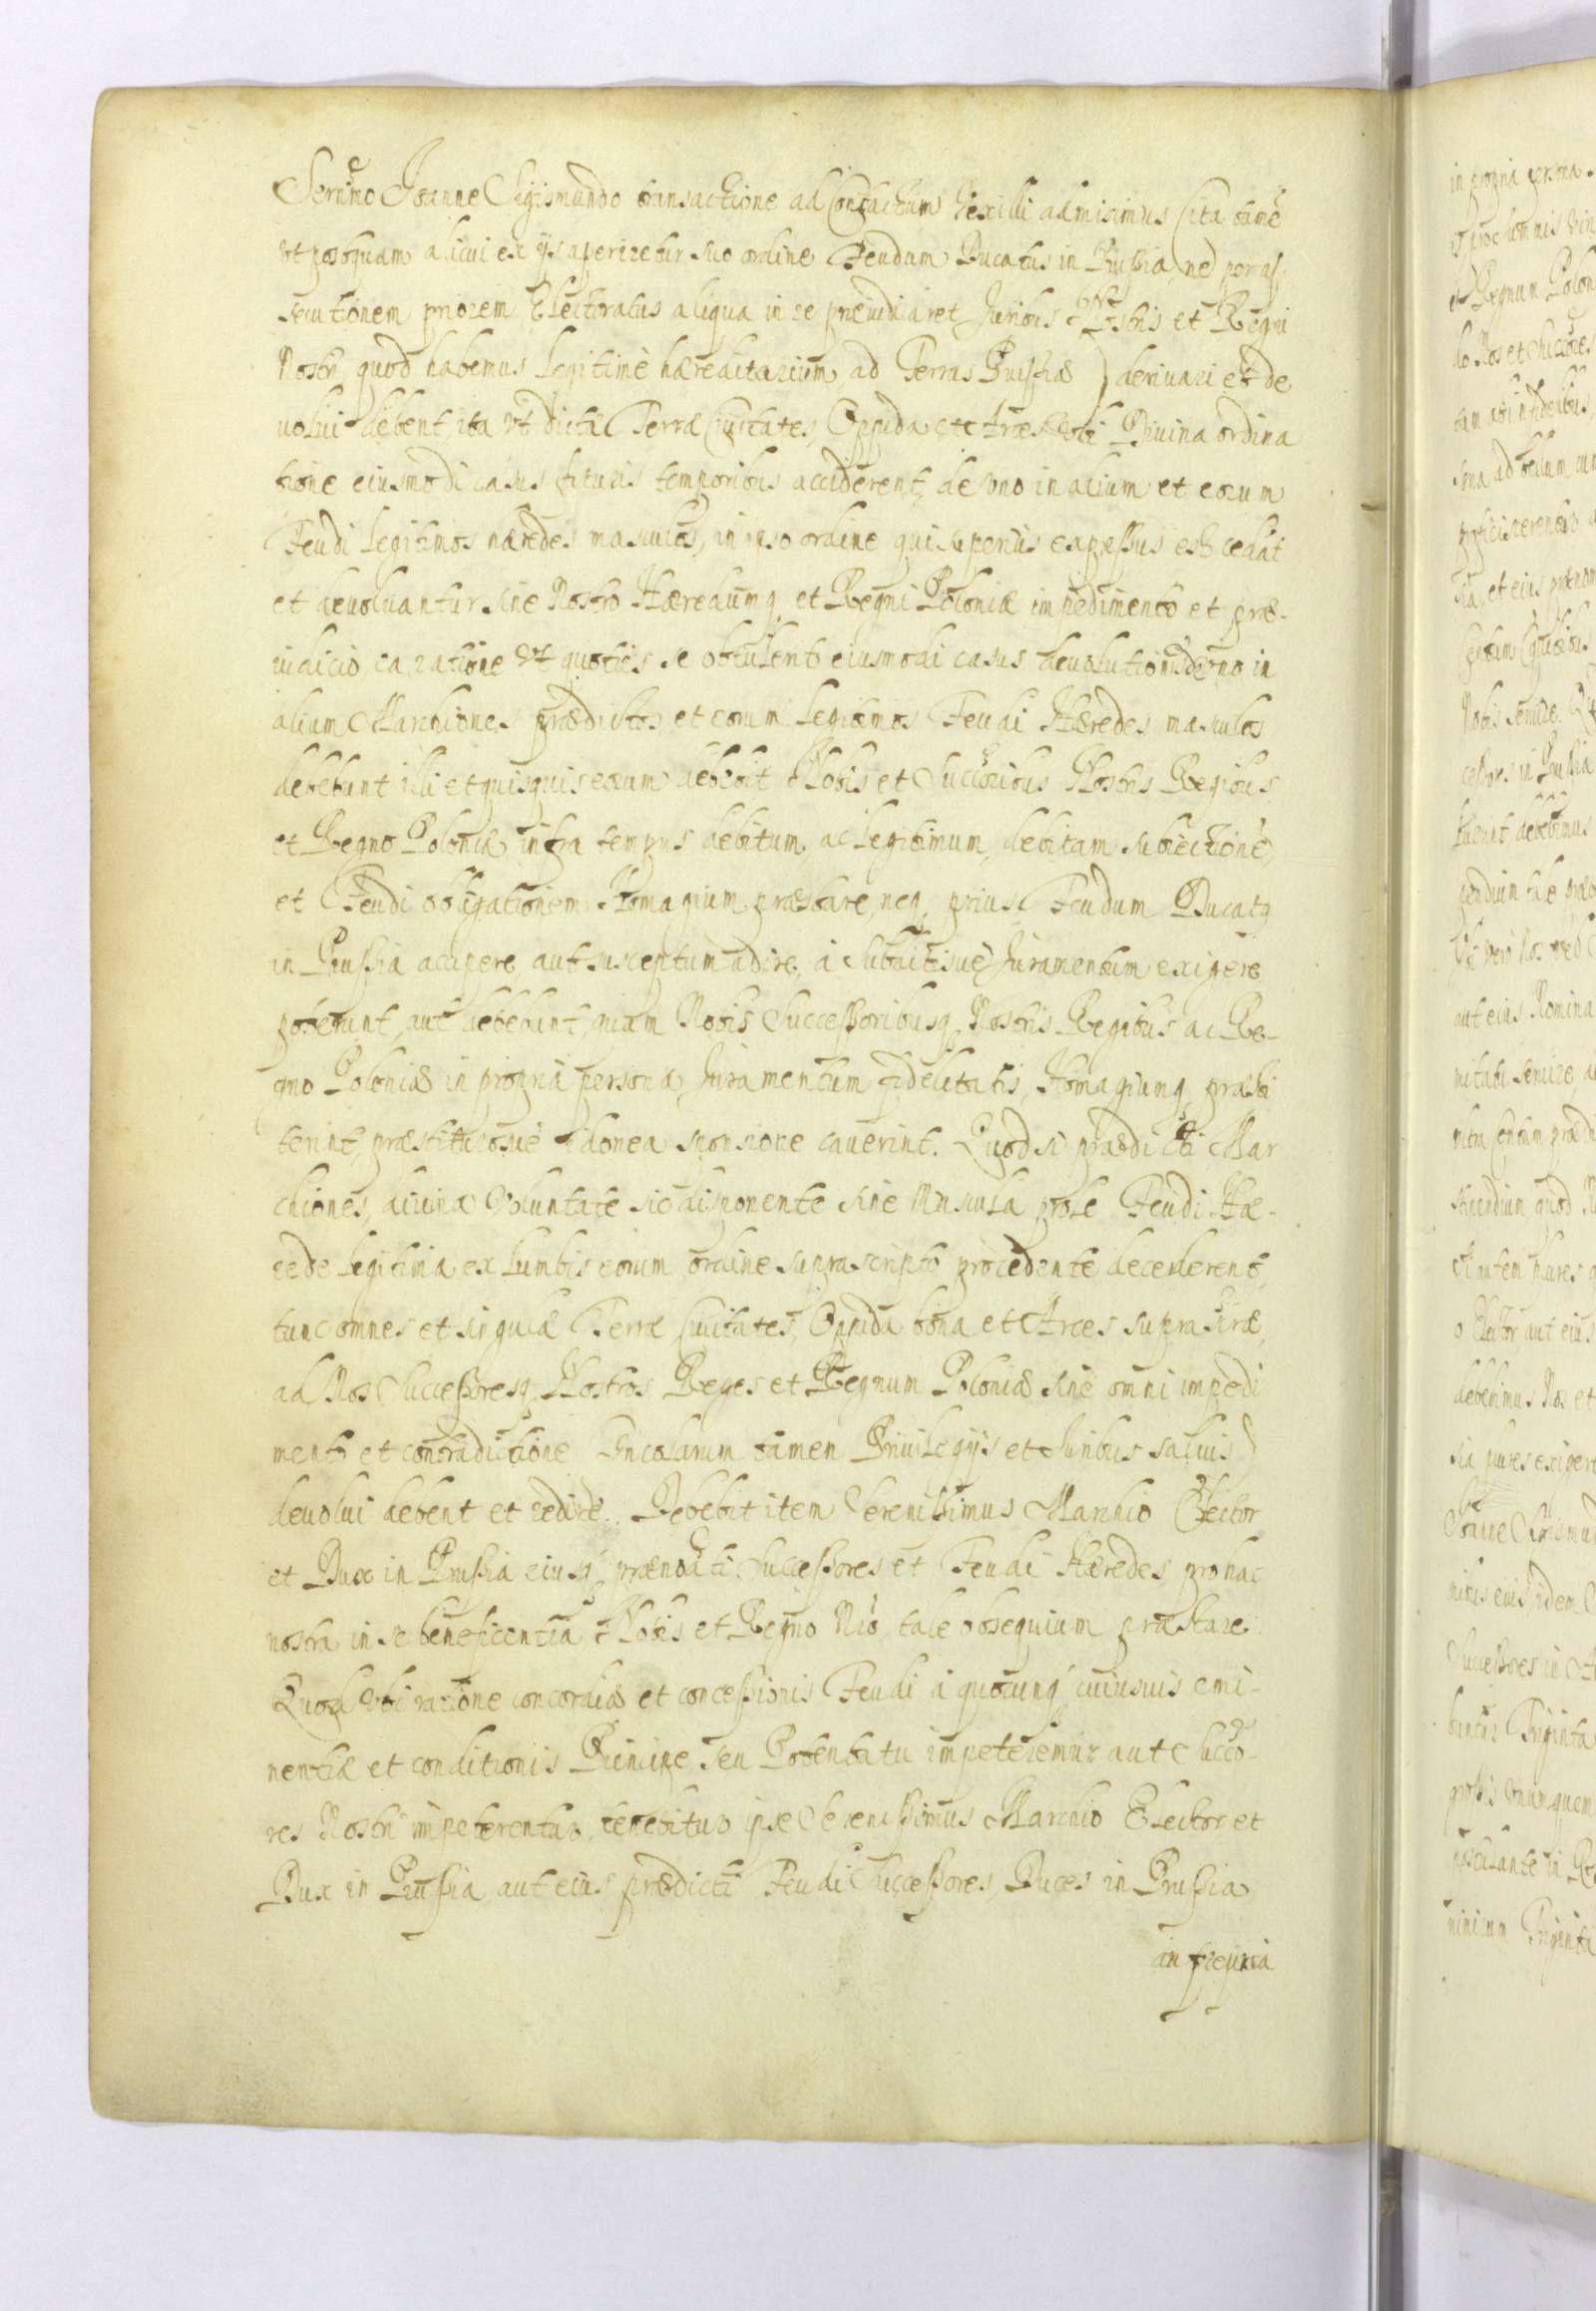 Sermo Joanne Sigismundo transactione ad Contactum Vexilli admisimus (ita tamē
vt postquam alicui ex ijs aperiretur suo ordine Feudum Ducatus in Prussia, ne per as-
secutionem priorem Electoratus aliqua in re præiudicaret Juribus Nostris et Regni
Nostri quod habemus legitimè hæreditarium ad Terras Prussiæ) deriuari et de
uolui debent, ita vt dictæ Terræ Ciuitates, Oppida et Arces, vbi Diuina ordina
tione eiusmodi casus futuris temporibus acciderent, de vno in alium et eorum
Feudi legitimos hæredes masculos, in ipso ordine qui superius expressus est cedāt
et deuoluantur sine Nostro Hæredumq et Regni Poloniæ impedimento et præ-
iudicio, ea ratione vt quoties se obtulerit eiusmodi casus deuolutionis de vno in
alium Marchiones prædictos et eorum legitimos Feudi Hæredes masculos
debebunt illi et quisquis eorum debebit Nobis et Succōribus Nostris Regibus
et Regno Poloniæ infra tempus debitum ac legitimum, debitam subiectionē
et Feudi obligationem Homagium præstare, neq prius Feudum Ducatq
in Prussia accipere, aut susceptum adire, à Subditisuè Juramentum exigere
poterunt, aut debebunt, quàm Nobis Successoribusq Nostris Regibus ac Re-
gno Poloniæ in propria persona Juramentum fidelitatis, Homagiumq præsti
terint, præstitisosuè idonea sponsione cauerint. Quod si prædicti Mar
chiones, diuina Voluntate sic disponente sine Mascula prole Feudi Hæ-
rede legitima ex lumbis eorum ordine suprascripto procedente decederent,
tunc omnes et singulæ Terræ Ciuitates, Oppida bona et Arces supra dictæ,
ad Nos Successoresq Nostros Reges et Regnum Poloniæ sine omni impedi
mento et contradictione (Incolarum tamen Priuilegijs et Juribus saluis)
deuolui debent et redire. Debebit item Serenissimus Marchio Elector
et Dux in Prussia eiusq prænoāti Successores et Feudi Hæredes pro hac
nostra in se beneficentia Nobis et Regno Nrō tale obsequium præstare.
Quod vbi ratione concordiæ et concessionis Feudi à quocunq cuiusuis emi-
nentiæ et conditionis Principe, seu Potentatu impeteremur aut Succō-
res Nostri impeterentur, tenebitur ipse Serenissimus Marchio Elector et
Dux in Prussia, aut eius prædicti Feudi Successores, Duces in Prussia